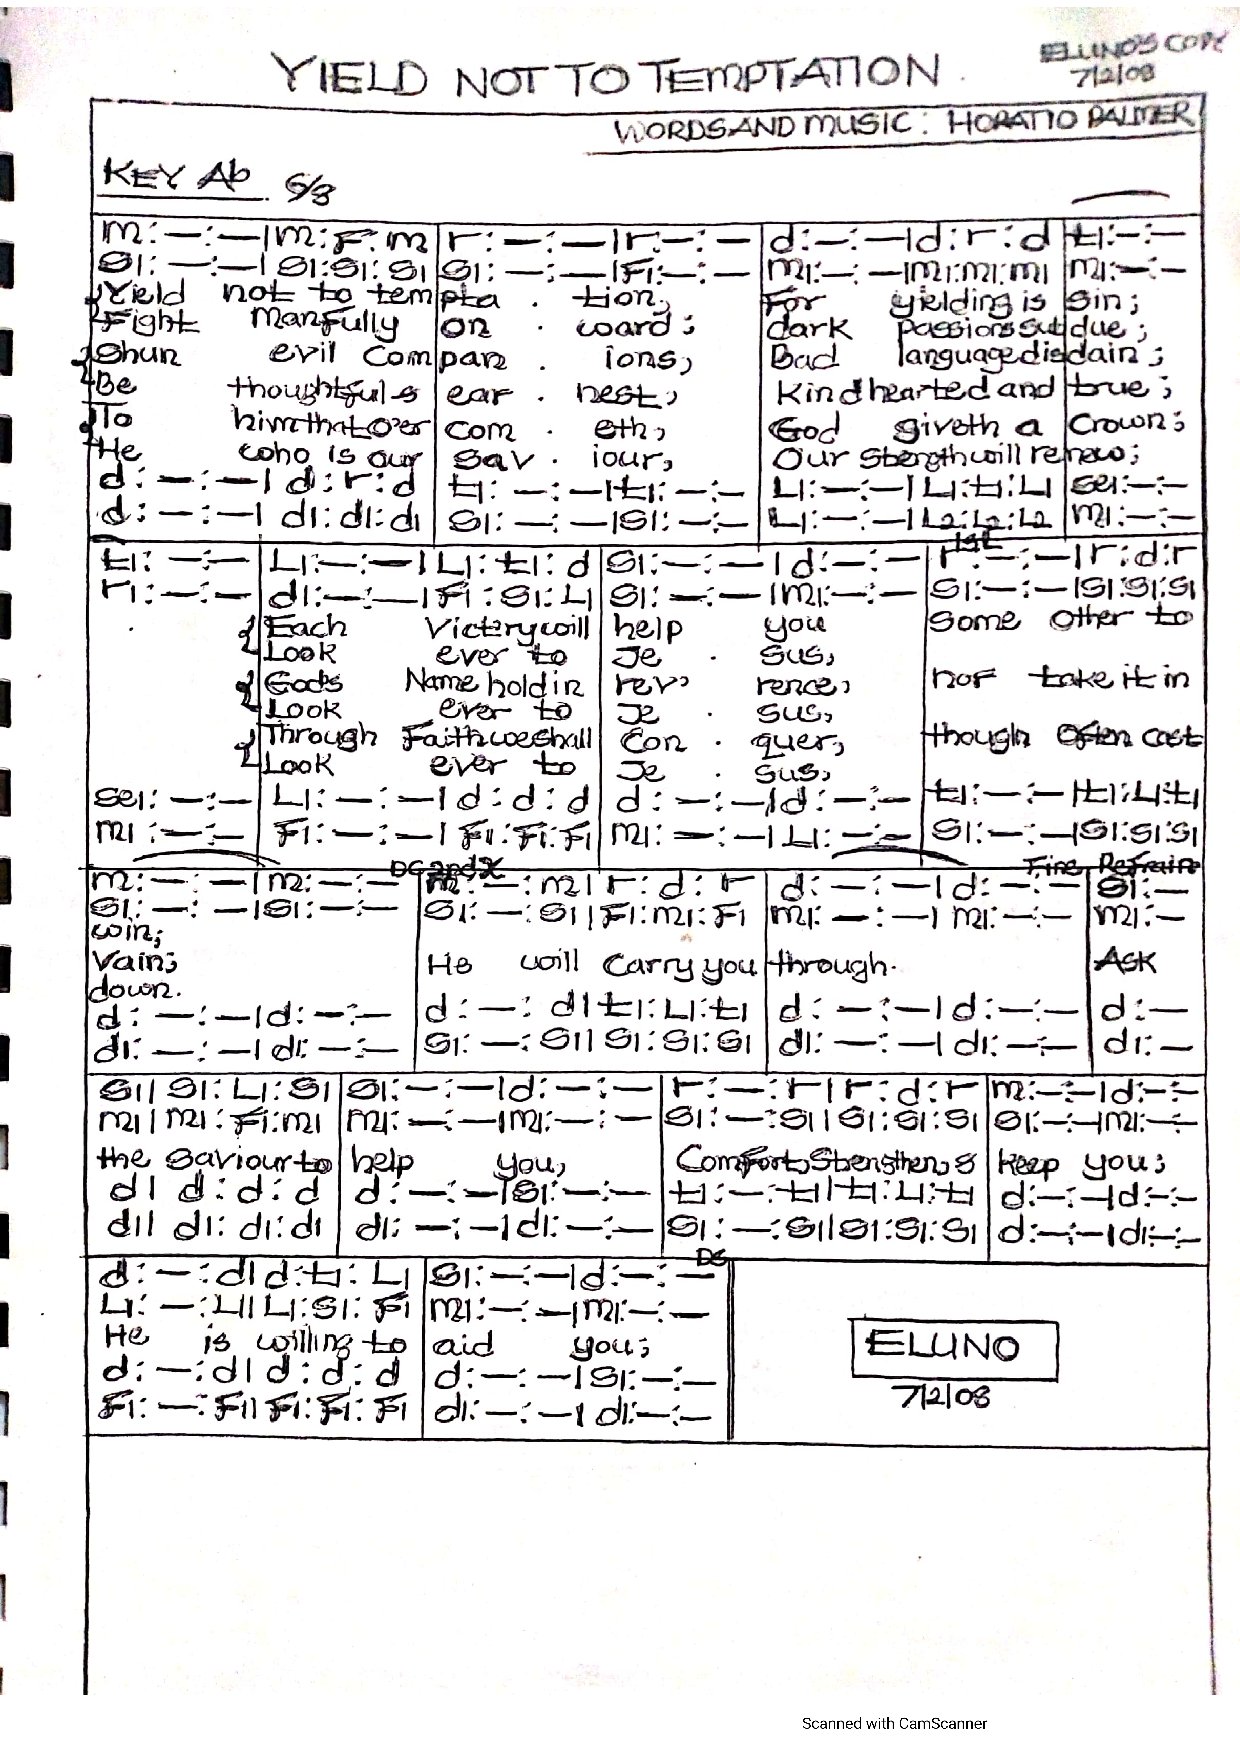 ELUNO'S COPY
7/2/08
YIELD NOT TO TEMPTATION
WORDS AND MUSIC: HORATIO PALMER
KEY Ab 6/8
m:—:—|m:f:m r:—:—|r:—:— d:—:—|d:r:d t1:—:—
s1:—:—|s1:s1:s1 s1:—:—|f1:—:— m1:—:—|m1:m1:m1 m1:—:—
Yield not to tempta . tion, For yielding is sin;
Fight manfully on . ward; dark passions subdue;
Shun evil compan . ions, Bad language disdain;
Be thoughtful & ear . nest, Kindhearted and true;
To him that o'er com . eth, God giveth a Crown;
He who is our Sav . iour, Our Strength will renew;
d:—:—|d:r:d t1:—:—|t1:—:— L1:—:—|L1:t1:L1 se1:—:—
d:—:—|d1:d1:d1 s1:—:—|s1:—:— L1:—:—|L2:L2:L2 m1:—:—
1st
t1:—:— L1:—:—|L1:t1:d s1:—:—|d:—:— r:—:—|r:d:r
r1:—:— d1:—:—|f1:s1:L1 s1:—:—|m1:—:— s1:—:—|s1:s1:s1
Each Victory will help you Some other to
Look ever to Je . sus,
God's Name hold in rev' rence, nor take it in
Look ever to Je . sus,
Through Faith we shall Con . quer, though often cast
Look ever to Je . sus,
se1:—:— L1:—:—|d:d:d d:—:—|d:—:— t1:—:—|t1:L1:t1
m1:—:— f1:—:—|f1:f1:f1 m1:—:—|L1:—:— s1:—:—|s1:s1:s1
DC 2nd X Fine Refrain
m:—:—|m:—:— m:—:m|r:d:r d:—:—|d:—:— s1:—
s1:—:—|s1:—:— s1:—:s1|f1:m1:f1 m1:—:—|m1:—:— m1:—
win;
Vain; He will carry you through. Ask
down.
d:—:—|d:—:— d:—:d|t1:L1:t1 d:—:—|d:—:— d:—
d1:—:—|d1:—:— s1:—:s1|s1:s1:s1 d1:—:—|d1:—:— d1:—
s1|s1:L1:s1 s1:—:—|d:—:— r:—:r|r:d:r m:—:—|d:—:—
m1|m1:f1:m1 m1:—:—|m1:—:— s1:—:s1|s1:s1:s1 s1:—:—|m1:—:—
the Saviour to help you, Comfort, Strengthen, & keep you;
d|d:d:d d:—:—|s1:—:— t1:—:t1|t1:L1:t1 d:—:—|d:—:—
d1|d1:d1:d1 d1:—:—|d1:—:— s1:—:s1|s1:s1:s1 d:—:—|d1:—:—
DS
d:—:d|d:t1:L1 s1:—:—|d:—:—
L1:—:L1|L1:s1:f1 m1:—:—|m1:—:—
He is willing to aid you;
d:—:d|d:d:d d:—:—|s1:—:—
f1:—:f1|f1:f1:f1 d1:—:—|d1:—:—
ELUNO
7/2/08
Scanned with CamScanner